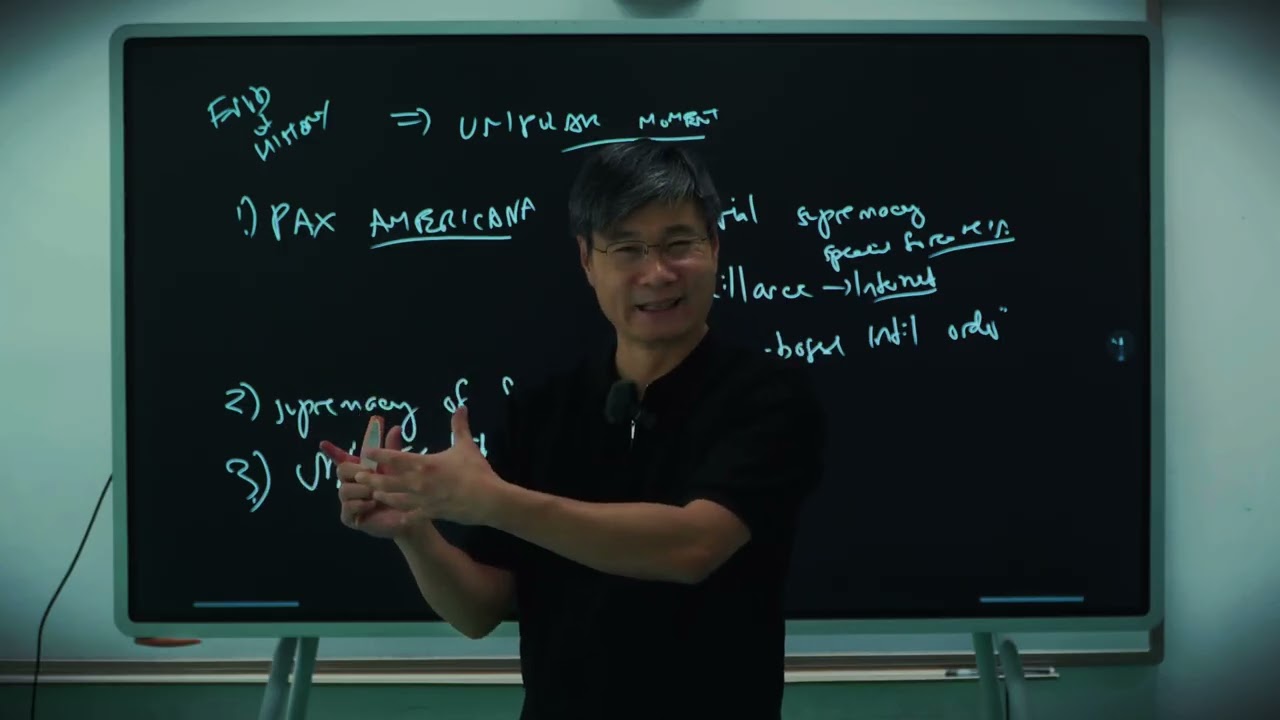 END
of
HISTORY
=> UNIPOLAR MOMENT
1.) PAX AMERICANA
supremacy
special forces
→ Internet
-based int'l order"
2) supremacy of
3)